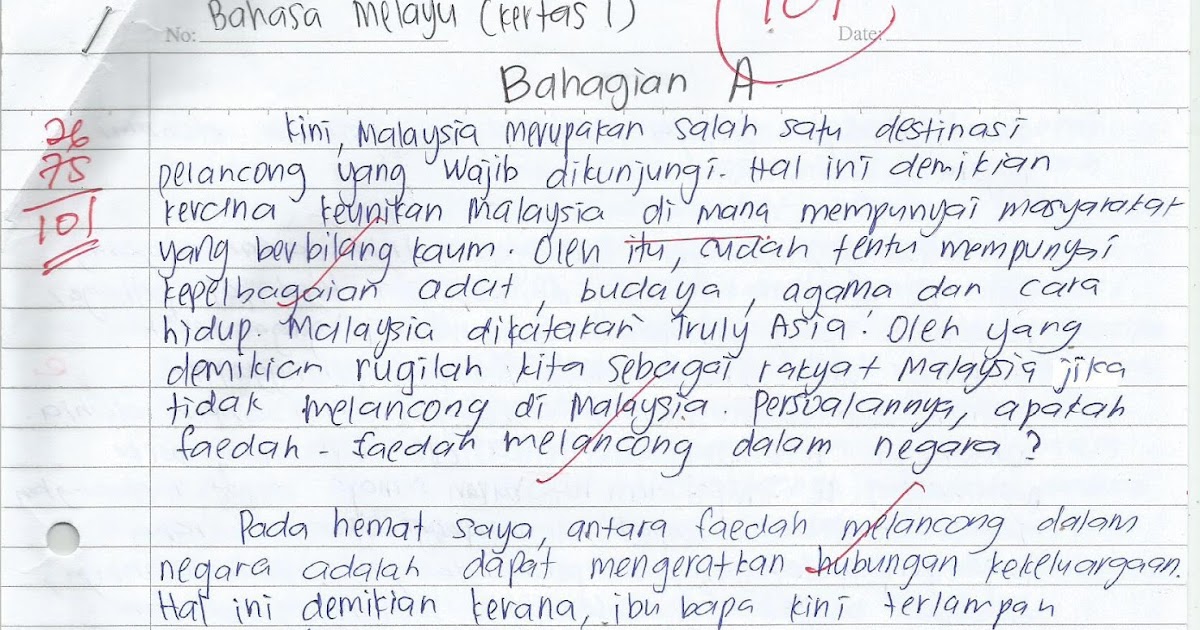 Bahasa Melayu (Kertas 1)
No:
Date:
Bahagian A.
26
75
101
Kini, Malaysia merupakan salah satu destinasi
pelancong yang wajib dikunjungi. Hal ini demikian
kerana keunikan Malaysia di mana mempunyai masyarakat
yang berbilang kaum. Oleh itu, sudah tentu mempunyai
kepelbagaian adat, budaya, agama dan cara
hidup. Malaysia dikatakan 'Truly Asia'. Oleh yang
demikian rugilah kita sebagai rakyat Malaysia jika
tidak melancong di Malaysia. Persoalannya, apakah
faedah-faedah melancong dalam negara?
Pada hemat saya, antara faedah melancong dalam
negara adalah dapat mengeratkan hubungan kekeluargaan.
Hal ini demikian kerana, ibu bapa kini terlampau